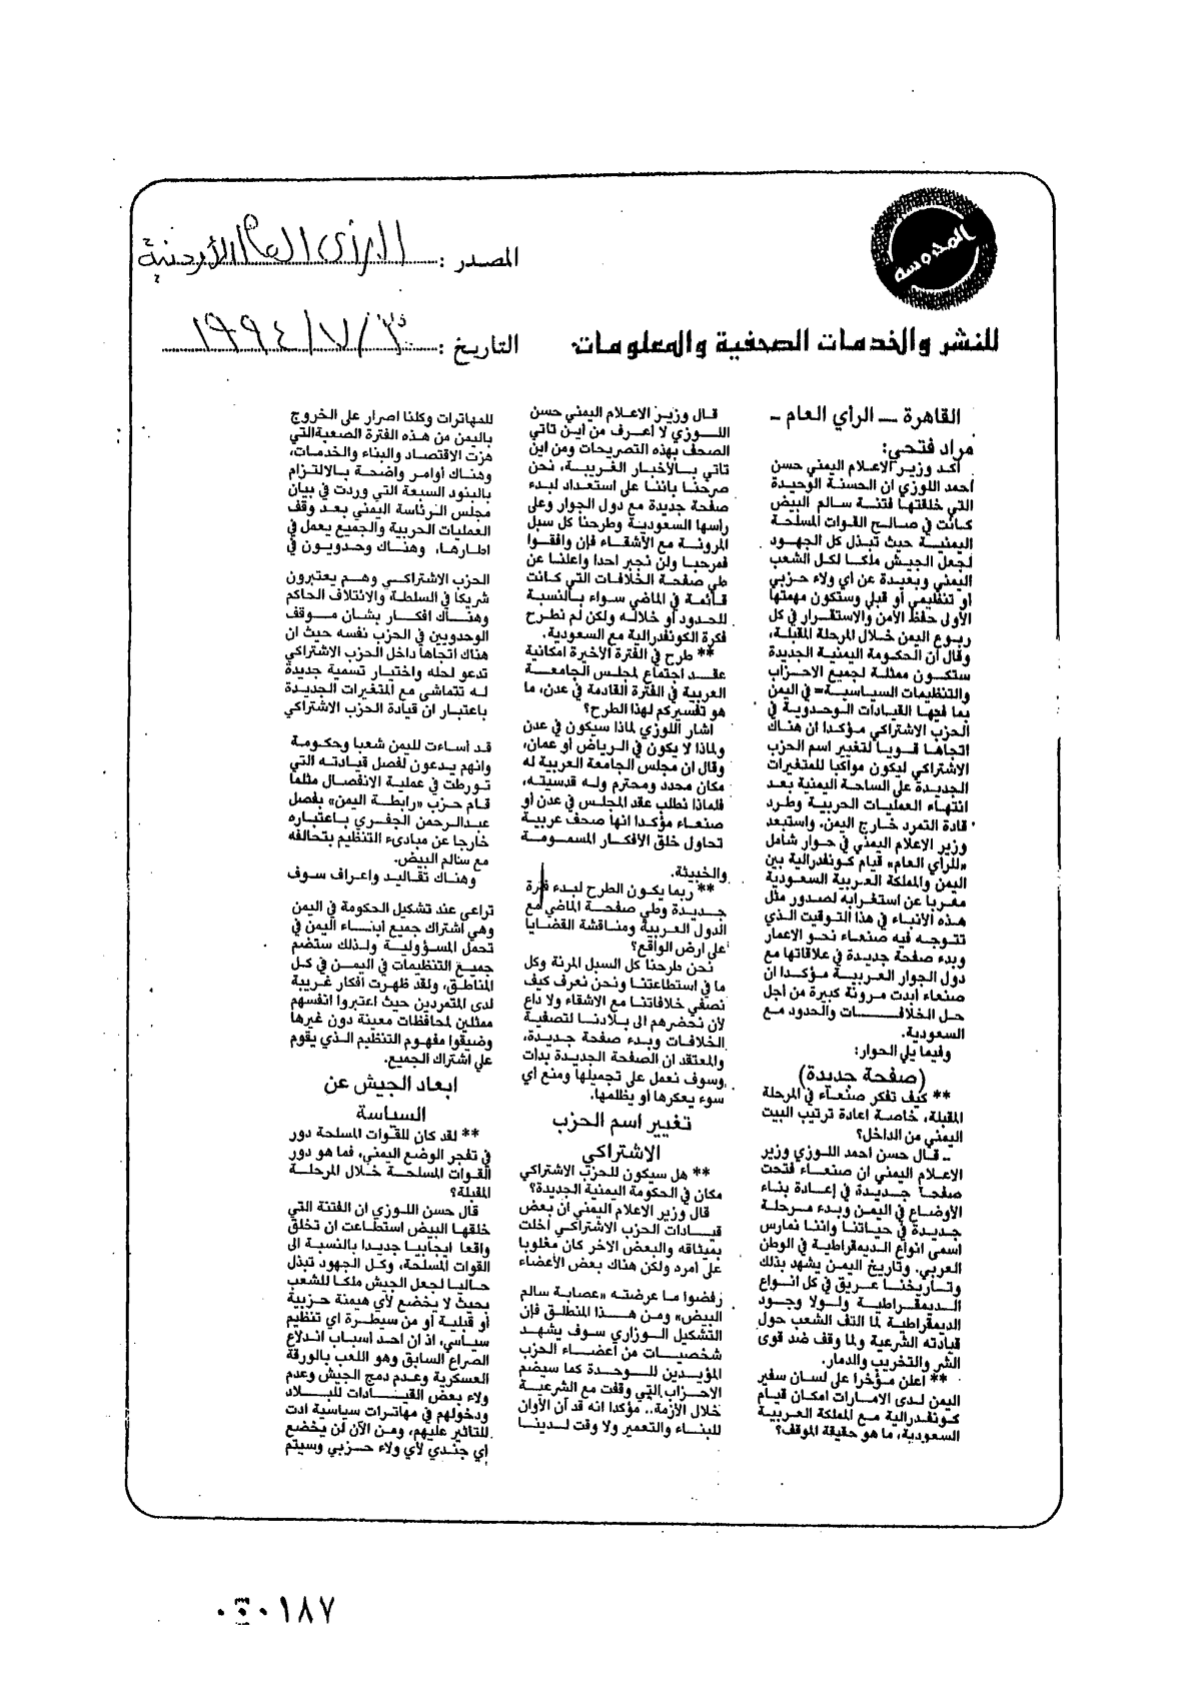 المحروسة
المصدر : الرأى العام الأردنية
للنشر والخدمات الصحفية والمعلومات
التاريخ : ٣٠/٧/١٩٩٤
القاهرة ــ الرأي العام ــ
مراد فتحي:
أكد وزير الاعلام اليمني حسن
أحمد اللوزي ان الحسنة الوحيدة
التي خلقتها فتنة سالم البيض
كانت في صالح القوات المسلحة
اليمنية حيث تبذل كل الجهود
لجعل الجيش ملكا لكل الشعب
اليمني وبعيدة عن أي ولاء حزبي
أو تنظيمي أو قبلي وستكون مهمتها
الأولى حفظ الأمن والاستقرار في كل
ربوع اليمن خلال المرحلة المقبلة،
وقال ان الحكومة اليمنية الجديدة
ستكون ممثلة لجميع الاحزاب
والتنظيمات السياسية في اليمن
بما فيها القيادات الوحدوية في
الحزب الاشتراكي مؤكدا ان هناك
اتجاها قويا لتغيير اسم الحزب
الاشتراكي ليكون مواكبا للمتغيرات
الجديدة على الساحة اليمنية بعد
انتهاء العمليات الحربية وطرد
قادة التمرد خارج اليمن. واستبعد
وزير الاعلام اليمني في حوار شامل
«للرأي العام» قيام كونفدرالية بين
اليمن والمملكة العربية السعودية
معربا عن استغرابه لصدور مثل
هذه الأنباء في هذا التوقيت الذي
تتوجه فيه صنعاء نحو الاعمار
وبدء صفحة جديدة في علاقاتها مع
دول الجوار العربية مؤكدا ان
صنعاء أبدت مرونة كبيرة من أجل
حل الخلافات والحدود مع
السعودية.
وفيما يلي الحوار:
(صفحة جديدة)
** كيف تفكر صنعاء في المرحلة
المقبلة، خاصة اعادة ترتيب البيت
اليمني من الداخل؟
ــ قال حسن احمد اللوزي وزير
الاعلام اليمني ان صنعاء فتحت
صفحا جديدة في إعادة بناء
الأوضاع في اليمن وبدء مرحلة
جديدة في حياتنا واننا نمارس
اسمى انواع الديمقراطية في الوطن
العربي. وتاريخ اليمن يشهد بذلك
وتاريخنا عريق في كل انواع
الديمقراطية ولولا وجود
الديمقراطية لما التف الشعب حول
قيادته الشرعية ولما وقف ضد قوى
الشر والتخريب والدمار.
** أعلن مؤخرا على لسان سفير
اليمن لدى الامارات امكان قيام
كونفدرالية مع المملكة العربية
السعودية، ما هو حقيقة الموقف؟
قال وزير الاعلام اليمني حسن
اللوزي لا أعرف من اين تاتي
الصحف بهذه التصريحات ومن اين
تاتي بالأخبار الغريبة، نحن
صرحنا باننا على استعداد لبدء
صفحة جديدة مع دول الجوار وعلى
رأسها السعودية وطرحنا كل سبل
المرونة مع الأشقاء فإن وافقوا
فمرحبا ولن نجبر احدا واعلنا عن
طي صفحة الخلافات التي كانت
قائمة في الماضي سواء بالنسبة
للحدود أو خلاله ولكن لم نطرح
فكرة الكونفدرالية مع السعودية.
** طرح في الفترة الأخيرة امكانية
عقد اجتماع لمجلس الجامعة
العربية في الفترة القادمة في عدن، ما
هو تفسيركم لهذا الطرح؟
أشار اللوزي لماذا سيكون في عدن
ولماذا لا يكون في الرياض أو عمان،
وقال ان مجلس الجامعة العربية له
مكان محدد ومحترم وله قدسيته،
فلماذا نطلب عقد المجلس في عدن أو
صنعاء مؤكدا انها صحف عربية
تحاول خلق الأفكار المسمومة
والخبيثة.
** ربما يكون الطرح لبدء فترة
جديدة وطي صفحة الماضي مع
الدول العربية ومناقشة القضايا
على ارض الواقع؟
نحن طرحنا كل السبل المرنة وكل
ما في استطاعتنا ونحن نعرف كيف
نصفي خلافاتنا مع الاشقاء ولا داع
لأن نحضرهم الى بلادنا لتصفية
الخلافات وبدء صفحة جديدة،
والمعتقد ان الصفحة الجديدة بدات
وسوف نعمل على تجميلها ومنع أي
سوء يعكرها أو يظلمها.
تغيير اسم الحزب
الاشتراكي
** هل سيكون للحزب الاشتراكي
مكان في الحكومة اليمنية الجديدة؟
قال وزير الاعلام اليمني ان بعض
قيادات الحزب الاشتراكي أخلت
بميثاقه والبعض الاخر كان مغلوبا
على أمره ولكن هناك بعض الأعضاء
رفضوا ما عرضته «عصابة سالم
البيض» ومن هذا المنطلق فإن
التشكيل الوزاري سوف يشهد
شخصيات من أعضاء الحزب
المؤيدين للوحدة كما سيضم
الاحزاب التي وقفت مع الشرعية
خلال الأزمة.. مؤكدا انه قد آن الأوان
للبناء والتعمير ولا وقت لدينا
للمهاترات وكلنا اصرار على الخروج
باليمن من هذه الفترة الصعبة التي
هزت الاقتصاد والبناء والخدمات،
وهناك أوامر واضحة بالالتزام
بالبنود السبعة التي وردت في بيان
مجلس الرئاسة اليمني بعد وقف
العمليات الحربية والجميع يعمل في
اطارها، وهناك وحدويون في
الحزب الاشتراكي وهم يعتبرون
شريكا في السلطة والائتلاف الحاكم
وهناك افكار بشان موقف
الوحدويين في الحزب نفسه حيث ان
هناك اتجاها داخل الحزب الاشتراكي
تدعو لحله واختيار تسمية جديدة
له تتماشى مع المتغيرات الجديدة
باعتبار ان قيادة الحزب الاشتراكي
قد أساءت لليمن شعبا وحكومة
وانهم يدعون لفصل قيادته التي
تورطت في عملية الانفصال مثلما
قام حزب «رابطة اليمن» بفصل
عبدالرحمن الجفري باعتباره
خارجا عن مبادىء التنظيم بتحالفه
مع سالم البيض.
وهناك تقاليد واعراف سوف
تراعى عند تشكيل الحكومة في اليمن
وهي اشتراك جميع ابناء اليمن في
تحمل المسؤولية ولذلك ستضم
جميع التنظيمات في اليمن في كل
المناطق، ولقد ظهرت أفكار غريبة
لدى المتمردين حيث اعتبروا انفسهم
ممثلين لمحافظات معينة دون غيرها
وضيقوا مفهوم التنظيم الذي يقوم
على اشتراك الجميع.
ابعاد الجيش عن
السياسة
** لقد كان للقوات المسلحة دور
في تفجر الوضع اليمني، فما هو دور
القوات المسلحة خلال المرحلة
المقبلة؟
قال حسن اللوزي ان الفتنة التي
خلقها البيض استطاعت ان تخلق
واقعا ايجابيا جديدا بالنسبة الى
القوات المسلحة، وكل الجهود تبذل
حاليا لجعل الجيش ملكا للشعب
بحيث لا يخضع لأي هيمنة حزبية
أو قبلية أو من سيطرة اي تنظيم
سياسي، اذ ان احد أسباب اندلاع
الصراع السابق وهو اللعب بالورقة
العسكرية وعدم دمج الجيش وعدم
ولاء بعض القيادات للبلاد
ودخولهم في مهاترات سياسية ادت
للتاثير عليهم، ومن الآن لن يخضع
أي جندي لأي ولاء حزبي وسيتم
١٨٧